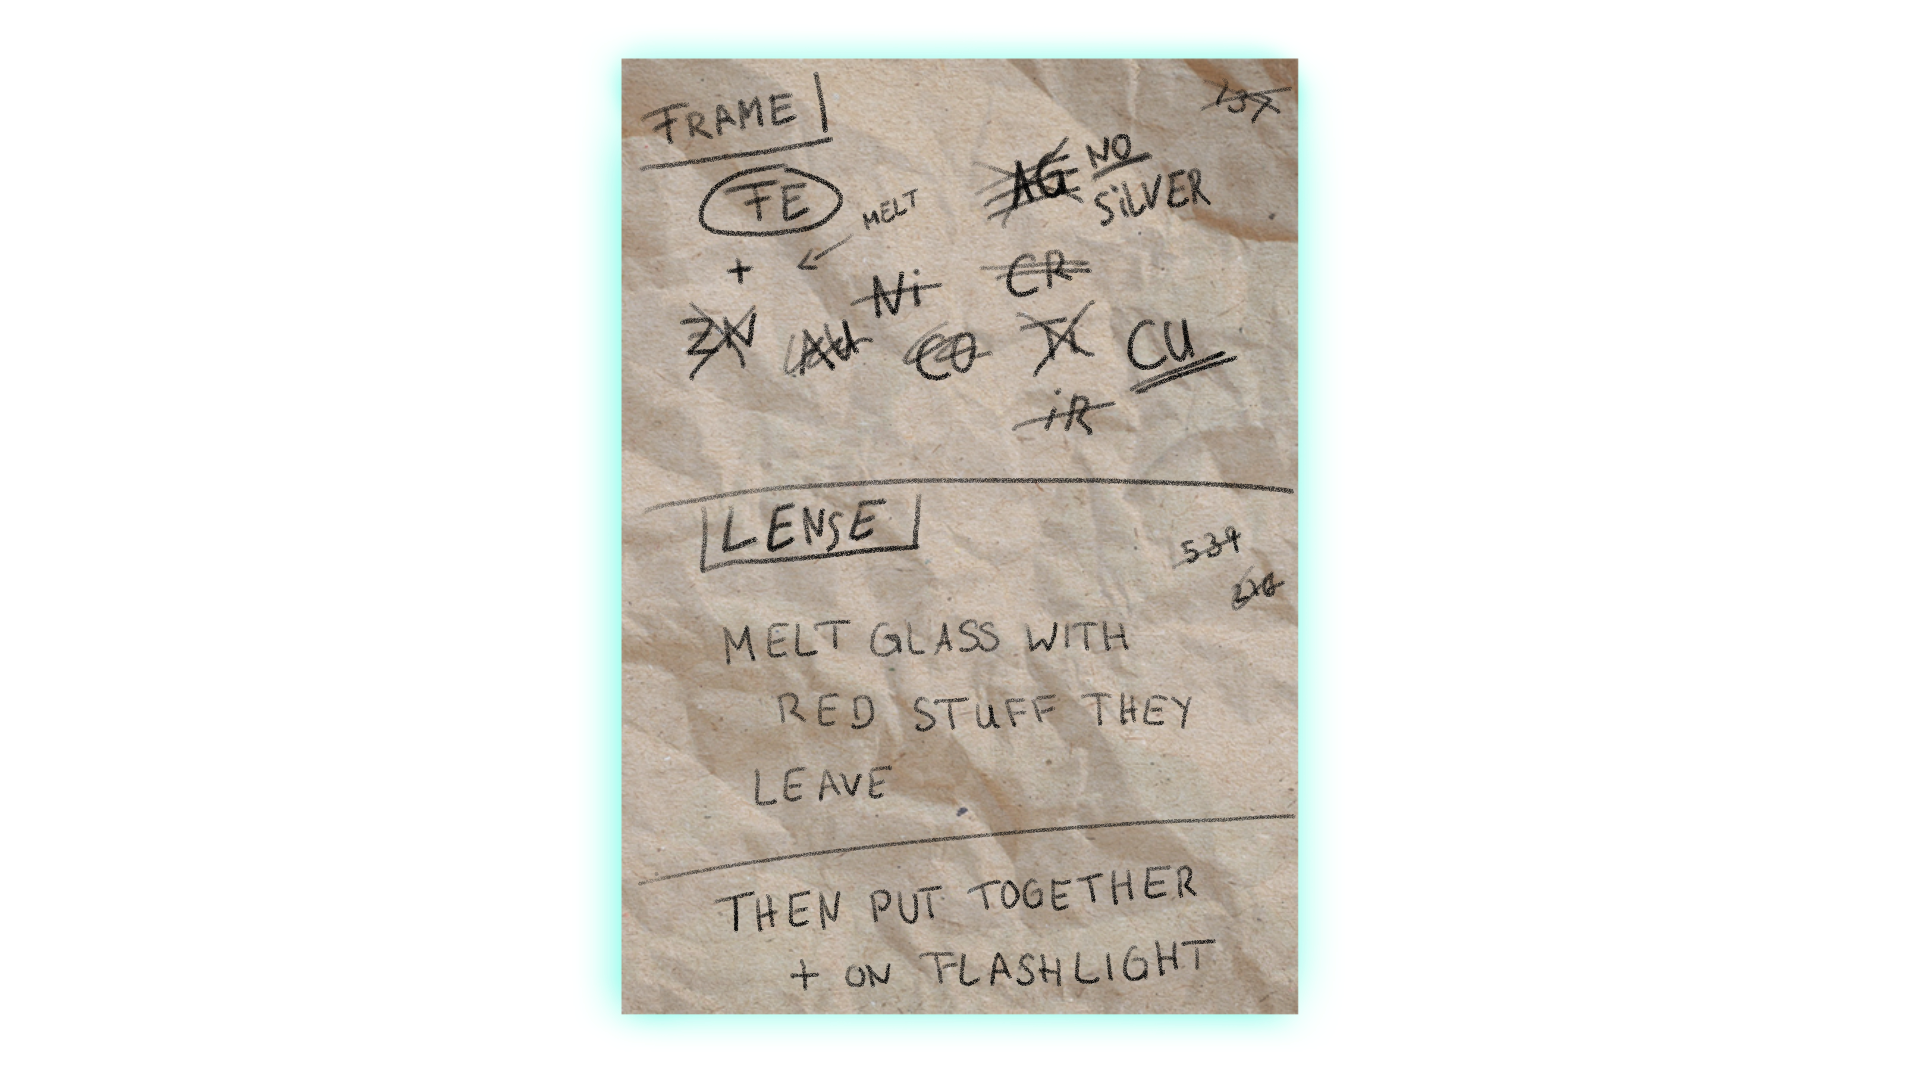 FRAME
137
FE
AG NO
SiLVER
MELT
+
Ni
CR
ZN
AU
CO
Ti
CU
iR
LENSE
534
MELT GLASS WITH
RED STUFF THEY
LEAVE
THEN PUT TOGETHER
+ ON FLASHLIGHT